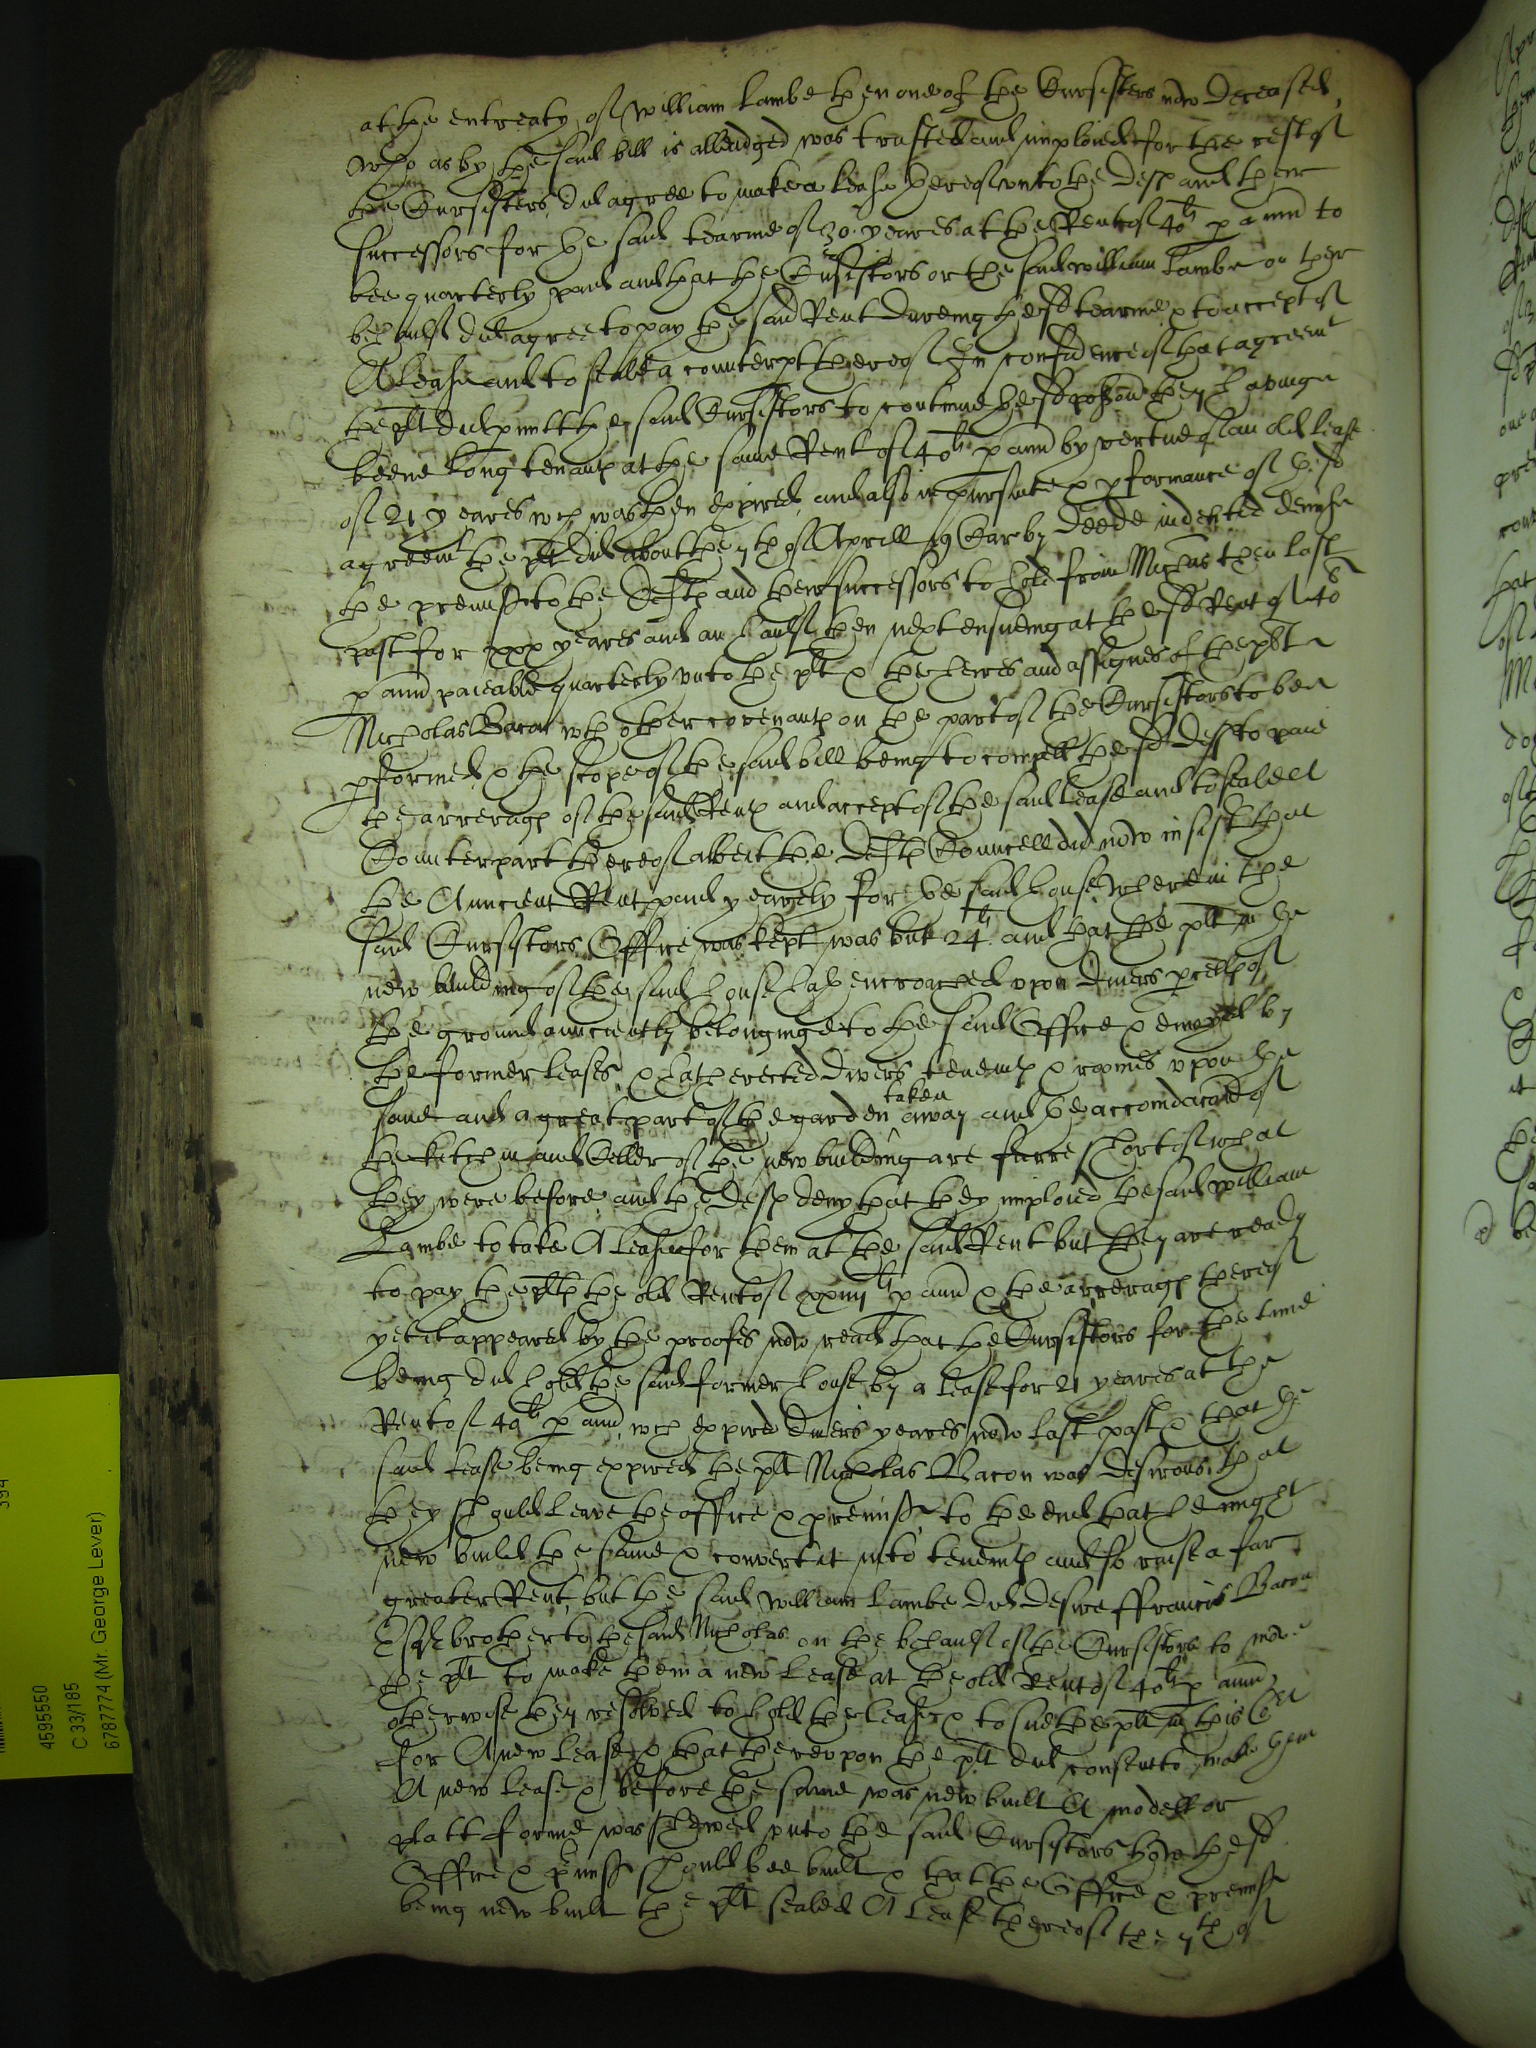 at the entreaty of William Lambe then one of the Cursisters now deceased,
who as by the said bill is alleadged was trusted and imploied for the rest of
the Cursisters, did agree to make a lease hereof unto the Defts and their
successors for the said tearme of 30 yeares at the Rent of 40li p annu to
bee quarterly paid and that the Cursistors or the said William Lambe on ther
behaulf did agree to pay the said Rent dureing the sd tearme & to accept of
A lease and to seale a counterpt thereof In confidence of that agreemt
the plt did pmitt the said Cursistors to contynue the sd possion they having
beene long tenants at the same Rent of 40li p ann by vertue of an old lease
of 21 yeares wch was then expired, and also in pursuite & pformance of the sd
agreemt the plt did about the 7th of Aprill 19 Car by deede indented demise
the premisses to the Defts and their successors to hold from Michas then last
past for xxx yeares and an haulf then next ensueing at the sd Rent of 40li
p annu paieable quarterly unto the plt & the heires and assignes of the plt
Nicholas Bacon wth other covenants on the part of the Cursistors to bee
pformed, & the scope of the said bill being to compell the sd Defts to paie
the arrerages of the said Rent and accept of the said lease and to seale A
Counterpart thereof albeit the Defts Councell did now insist that
the Auncient Rent paid yearely for the said house wherein the
said Cursistors Office was kept was but 24li and that the plt in the
new building of the said house hath encroached upon divers pcells of
the ground aunciently belonginge to the said Office & demised by
the former leases, & hath erected divers tenemts & roomes upon the
same and a great part of the garden away and the accomdacons of
taken
the kitchin and Celler of the new building are farre short of what
they were before, and the Defts deny that they imploied the said William
Lambe to take A lease for them at the said Rent but they are ready
to pay the plts the old Rent of xxiiijli p annu & the arrerages thereof
yet it appeared by the proofes now read that the Cursistors for the time
being did hold the said former house by a lease for 21 yeares at the
Rent of 40li p annu, wch expired divers yeares now last past & that the
said lease being expired the plt Nicholas Bacon was desirous that
they should leave the office & premisses to the end that he might
new build the same & convert it into tenemts and so raise a far
greater Rent, but the said William Lambe did desire ffrancis Bacon
Esqr brother to the said Nicholas on the behaulf of the Cursistors to move
the plt to make them a new lease at the old Rent of 40li p annu,
otherwise they resolved to hold the lease & to sue the plt in this Cort
for A new lease & that thereupon the plt did consent to make them
A new lease & before the same was new built A modell or
plattforme was shewed unto the said Cursistors how the sd
Office & pmisses should bee built & that the Office & premisses
being new built the plt sealed A lease thereof the 7th of
4595550
C 33/185
6787774 (Mr. George Lever)